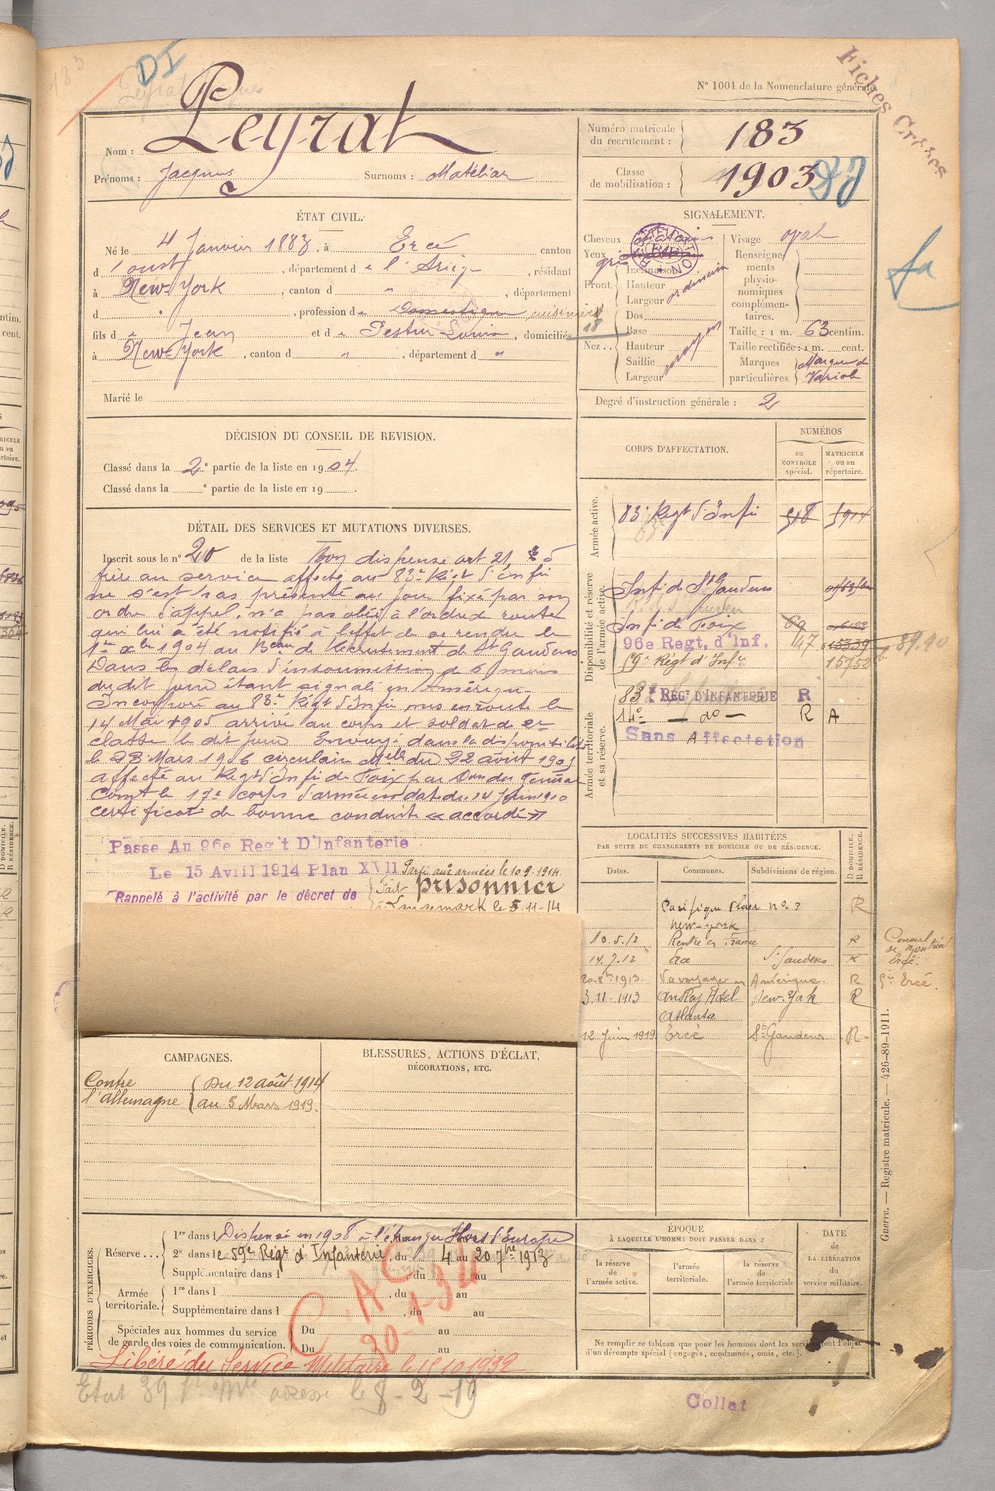 183
DI
N° 1001 de la Nomenclature générale
Fiches Croisées
Nom : Peyrat
Prénoms : Jacques Surnoms : Matélian
Numéro matricule du recrutement : 183
Classe de mobilisation : 1903
ÉTAT CIVIL.
Né le 4 Janvier 1883, à Ercé canton
d'Oust, département de l'Ariège, résidant
à New-York, canton d " , département
d " , profession de Domestique
fils de Jean et de Louise, domiciliés
à New-York, canton d " , département d "
Marié le
SIGNALEMENT.
Cheveux châtains Visage oval
Yeux gris
Front. Inclinaison
Hauteur
Largeur ordinaire
Nez.. Dos
Base
Hauteur
Saillie
Largeur moyen
Renseignements physionomiques complémentaires.
Taille : 1 m. 63 centim.
Taille rectifiée : 1 m. cent.
Marques particulières. Marques de Variole
Degré d'instruction générale : 2
DÉCISION DU CONSEIL DE REVISION.
Classé dans la 2e partie de la liste en 1904.
Classé dans la ° partie de la liste en 19 .
DÉTAIL DES SERVICES ET MUTATIONS DIVERSES.
Inscrit sous le n° 20 de la liste Bon dispensé art 21,
frère au service affecté au 83e Régt d'Infie
ne s'est pas présenté au jour fixé par son
ordre d'appel, n'a pas obéi à l'ordre de route
qui lui a été notifié à l'effet de se rendre le
1er Xbre 1904 au Beau de Recrutement de St Gaudens
Dans les délais d'insoumission de 6 mois
du dit jour étant signalé en Amérique.
Incorporé au 83e Régt d'Infie mis en route le
14 Mai 1905 arrivé au corps et soldat de 2e
classe le dit jour Envoyé dans la disponibilité
le 28 Mars 1906 circulaire Mlle du 22 août 1905
affecté au Régt d'Infie de Foix par Don du Général
Comt le 17e corps d'armée en date du 14 Juin 1910
certificat de bonne conduite « accordé »
Passé Au 96e Reg't D'Infanterie
Le 15 Avril 1914 Plan XVII Parti aux armées le 10.9.1914
Rappelé à l'activité par le décret de Fait prisonnier
le 5-11-14
CORPS D'AFFECTATION.
NUMÉROS
au CONTRÔLE spécial.
MATRICULE ou au répertoire.
Armée active.
83e Régt d'Infie
Disponibilité et réserve de l'armée active.
Infie de St Gaudens
Infie de Foix
96e Regt. d'Inf. 47 15339
59e Régt d'Infie 15752
Armée territoriale et sa réserve.
83e RÉGt D'INFANTERIE R
14e — do — R A
Sans Affectation
LOCALITÉS SUCCESSIVES HABITÉES
PAR SUITE DE CHANGEMENTS DE DOMICILE OU DE RÉSIDENCE.
D DOMICILE. R RÉSIDENCE.
Dates. Communes. Subdivisions de région.
Pacifique Place n° 3 R
New-york
10.5.12 Rentré en France R
14.7.12 Ercé St Gaudens
1913. Va voyager en Amérique. R
3.11.1913 Hotel New-York R
Atlanta
12 Juin 1919 Ercé St Gaudens R
CAMPAGNES.
Contre l'Allemagne
Du 12 août 1914
au 5 Mars 1919.
BLESSURES, ACTIONS D'ÉCLAT,
DÉCORATIONS, ETC.
PÉRIODES D'EXERCICES.
Réserve... 1re dans l Dispensé en 1908 à l'étranger Hors d'Europe
2e dans le 59e Régt d'Infanterie, du 4 au 20 7bre 1913
Supplémentaire dans l , du au
Armée territoriale. 1re dans l , du au
Supplémentaire dans l , du au
Spéciales aux hommes du service de garde des voies de communication.
Du au
Du au
C.A.C
Libéré du Service Militaire le 15.10.1932
ÉPOQUE
À LAQUELLE L'HOMME DOIT PASSER DANS :
la réserve de l'armée active.
l'armée territoriale.
la réserve de l'armée territoriale
DATE
de LA LIBÉRATION du service militaire.
Ne remplir ce tableau que pour les hommes dont les services font l'objet
d'un décompte spécial (engagés, condamnés, omis, etc.).
Guerre. — Registre matricule. — 426-89-1911.
Collat